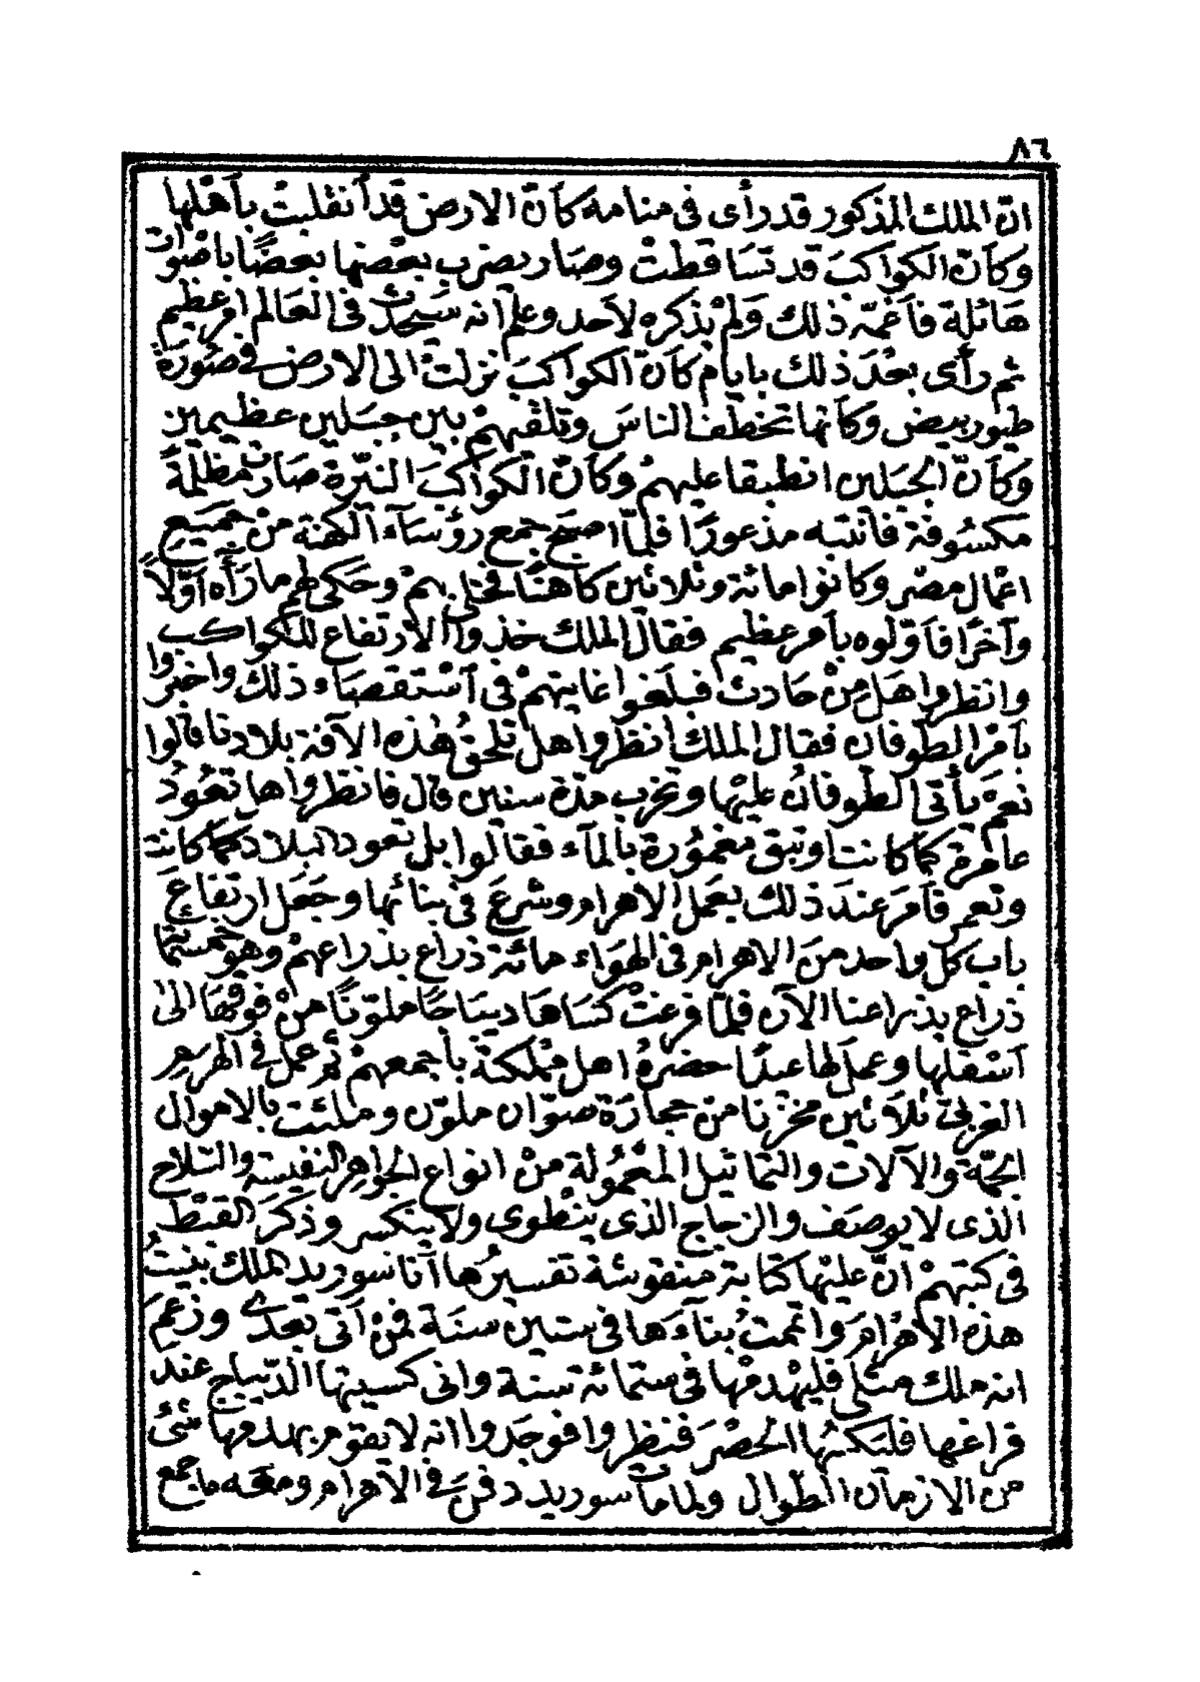 ٨٦
انّ الملك المذكور قد رأى فى منامه كأنّ الارض قد آنقلبتْ بأهْلها
وكأنّ الكواكبَ قد تسَاقطتْ وصَار يضرب بعْضها بعضًا باصْوات
هَائلة فأغمّه ذلك ولمْ يذكره لاحد وعلم انه سَيحدث فى العَالم امر عظيم
ثم رأى بعْدَ ذلك بايام كأنّ الكواكبَ نزلتْ الى الارض فى صُورَة
طيور بيض وكأنها تخطف الناسَ وتلقيهمْ بين جبَلين عظيمين
وكأنّ الجبَلين انطبقا عليهمُ وكأنّ الكواكبَ النيّرة صَارت مظلمَة
مكسُوفة فانتبه مذعورًا فلمّا اصبَح جمع رؤسَآء الكهنة منْ جميع
اعْمال مصْر وكانوا مائة وثلاثين كاهنًا فختلى بهمْ وحَكى لهم ما رَأه اوّلاً
وآخرًا فأوّلوه بأمر عظيم فقال الملك خذوا الارتفاع للكواكب
وانظروا هَل منْ حَادث فبلغوا غايتهمْ فى اسْتقصَاء ذلك واخبروا
بأمْر الطوفان فقال الملك انظروا هل تلحقُ هٰذه الآفة بلادنا قالوا
نعمْ يأتى الطوفانُ عليْها وتخرب مدّة سنين قال فانظروا هل تعُودُ
عامرة كما كانت او تبقى مغمُورة بالمآء فقالوا بل تعود البلاد كما كانت
وتعمر فأمرَ عندَ ذلك بعَمل الاهرام وشرعَ فى بنائها وجَعل ارتفاعَ
باب كل واحد منَ الاهرام فى الهوَاء مائة ذراع بذراعهمْ وهو خمسمائة
ذراع بذراعنا الآن فلمّا فرغتْ كسَاهَا ديبَاجًا ملوّنًا منْ فوقهَا الىٰ
آسْفلها وعمل لها عيدًا حضرهُ اهل مملكته بأجمعهمْ ثم عمل فى الهرم
الغربى ثلاثين مخزنا من حجارَة صوّان ملوّن وملئت بالاموال
الجمّة والآلات والتماثيل المعْمُولة منْ انواع الجواهر النفيسة والسّلاح
الذى لا يوصَف والزجاج الذى ينْطوى ولا ينكسر وذكرَ القبْط
فى كتبهمْ انّ عليْها كتابة منقوشة تفسيرُها آنا سوريد الملك بنيتُ
هذه الاهرامَ واتممتُ بنآءَها فى ستين سنَة فمنْ آتى بعْدى وزعمَ
انه ملك مثلى فليهْدمْها فى ستمائة سَنة وانى كسيتها الدّيباج عند
فراغها فليَكسُها الحصْرَ فنظروا فوجَدوا انه لا يقوم بهدمها شئ
من الازمان الطوال ولما مات سوريد دفنَ فى الاهرام ومعه ما جمع